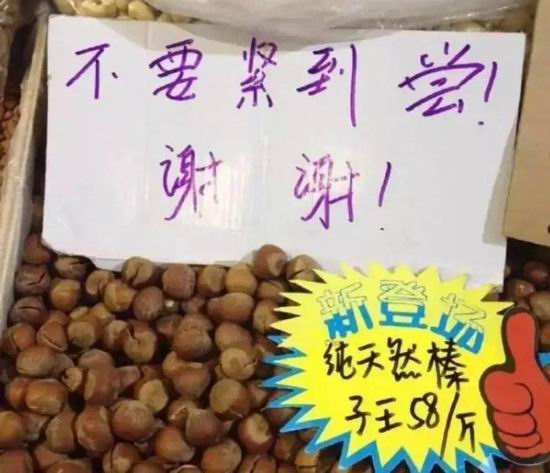 不要紧到尝!
谢谢!
新登场
纯天然榛
子王58/斤